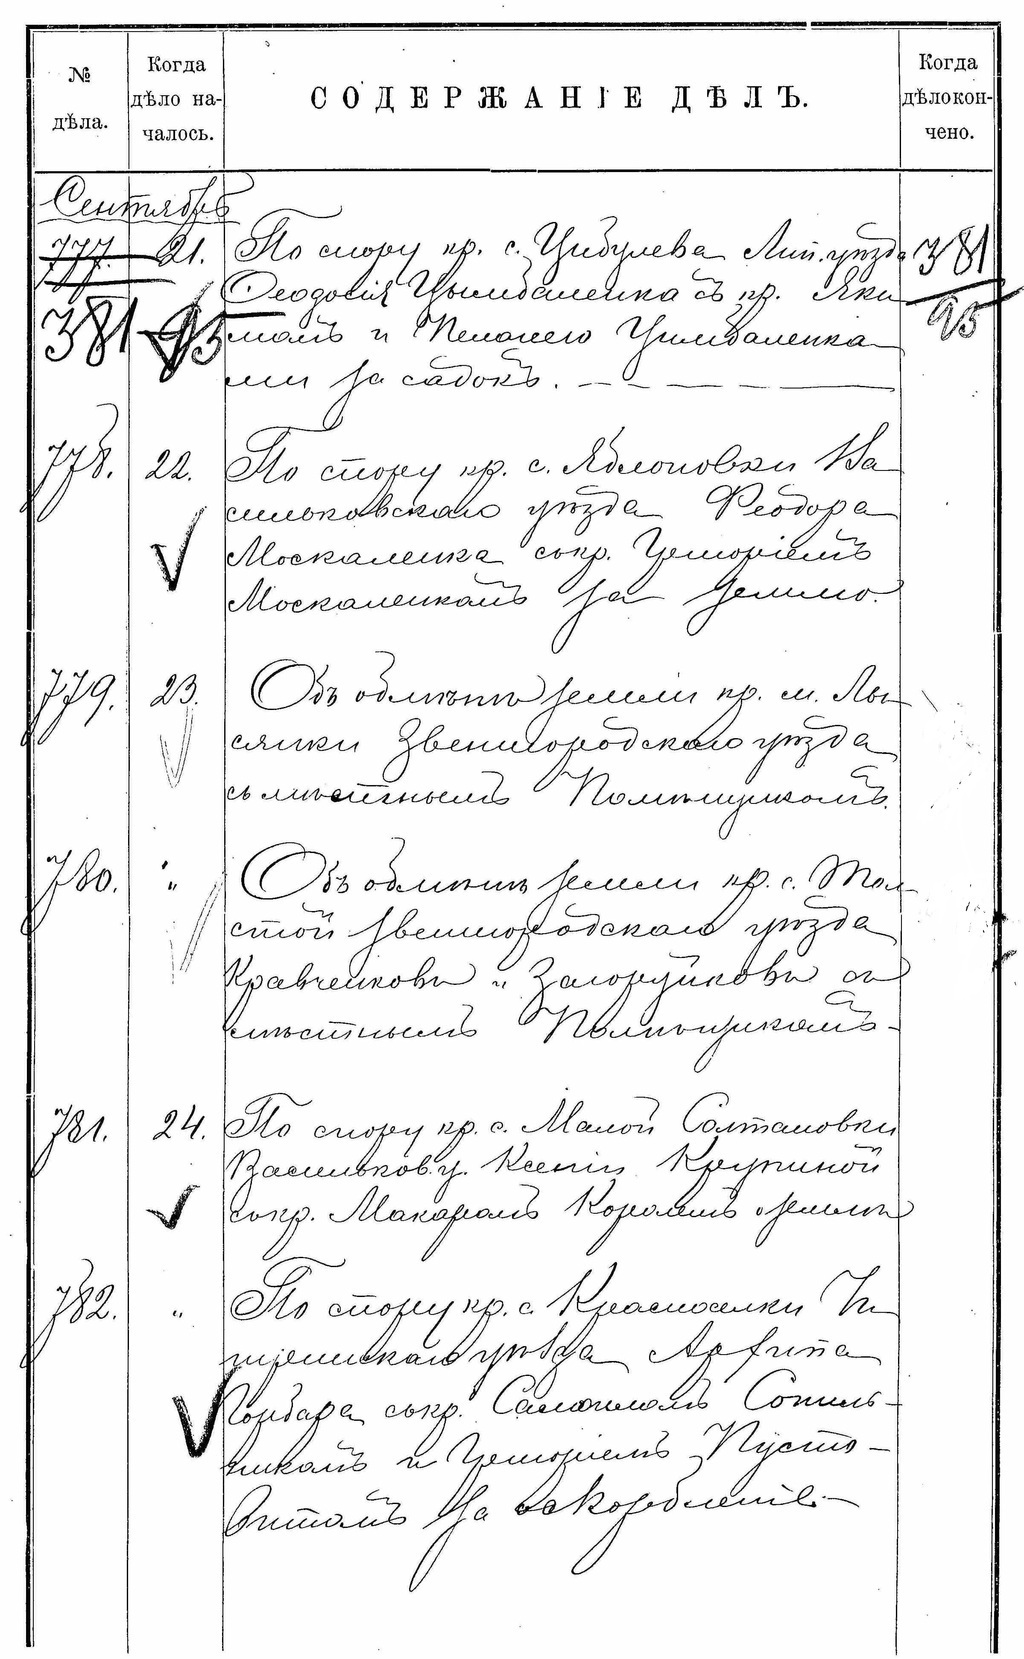 № дѣла.
Когда дѣло на-
чалось.
СОДЕРЖАНІЕ ДѢЛЪ.
Когда дѣлокон-
чено.
Сентябрь
777. 21. По спору кр. с. Цибулева Лип. уѣзда 381
Ѳеодосія Цымбаленка съ кр. Яки- 95
381 95 момъ и Пелагею Цимбаленка-
ми за садокъ.
778. 22. По спору кр. с. Яблоновки Ва
сильковскаго уѣзда Ѳеодора
Москаленка съ кр. Григоріемъ
Москаленкомъ за землю.
779. 23. Объ обмѣнѣ земели кр. м. Лы-
сянки Звенигородскаго уѣзда
съ мѣстнымъ Помѣщикомъ.
780. " Объ обмѣнѣ земели кр. с. Тол-
стой Звенигородскаго уѣзда
Кравченковы и съ
мѣстнымъ Помѣщикомъ.
781. 24. По спору кр. с. Малой Солтановки
Васильков. у. Ксеніи Крупиной
съ кр. Макаромъ о землѣ
782. " По спору кр. с. Красноселки
уѣзда
съ кр. Сопиль-
никомъ и Григоріемъ Пусто-
витомъ за оскорбленіе.